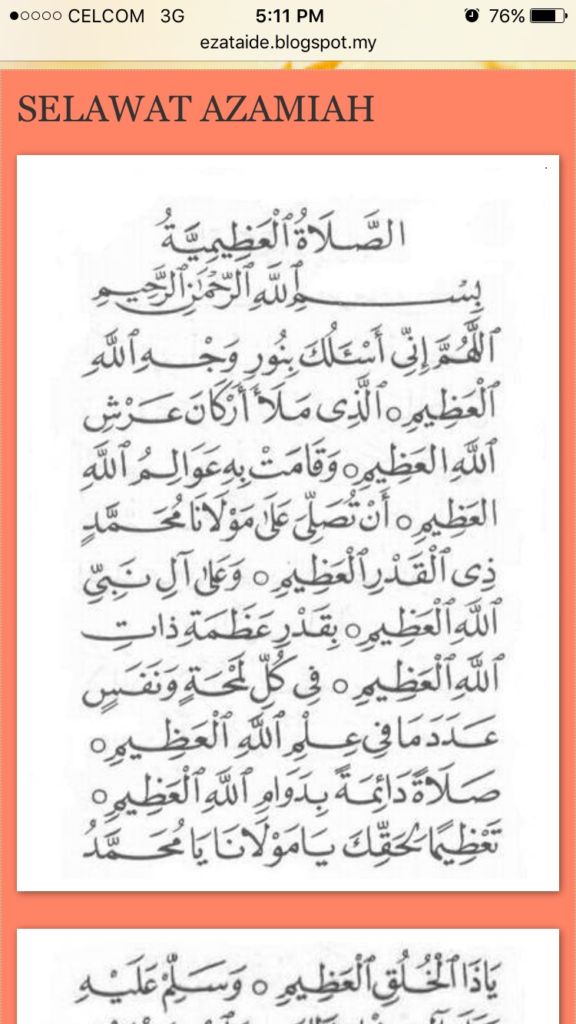 CELCOM 3G 5:11 PM 76%
ezataide.blogspot.my
SELAWAT AZAMIAH
الصَّلَاةُ ٱلْعَظِيمِيَّةُ
بِسْمِ ٱللَّهِ ٱلرَّحْمَٰنِ ٱلرَّحِيمِ
ٱللَّهُمَّ إِنِّى أَسْئَلُكَ بِنُورِ وَجْهِ ٱللَّهِ
ٱلْعَظِيمِ ٥ ٱلَّذِى مَلَأَ أَرْكَانَ عَرْشِ
ٱللَّهِ العَظِيمِ ٥ وَقَامَتْ بِهِ عَوَالِمُ ٱللَّهِ
العَظِيمِ ٥ أَنْ تُصَلِّىَ عَلَىٰ مَوْلَانَا مُحَمَّدٍ
ذِى ٱلْقَدْرِ ٱلْعَظِيمِ ٥ وَعَلَىٰ آلِ نَبِىِّ
ٱللَّهِ ٱلْعَظِيمِ ٥ بِقَدْرِ عَظَمَةِ ذَاتِ
ٱللَّهِ ٱلْعَظِيمِ ٥ فِى كُلِّ لَمْحَةٍ وَنَفَسٍ
عَدَدَ مَا فِى عِلْمِ ٱللَّهِ ٱلْعَظِيمِ ٥
صَلَاةً دَائِمَةً بِدَوَامِ ٱللَّهِ ٱلْعَظِيمِ ٥
تَعْظِيمًا لِحَقِّكَ يَا مَوْلَانَا يَا مُحَمَّدُ
يَاذَا ٱلْخُلُقِ ٱلْعَظِيمِ ٥ وَسَلِّمْ عَلَيْهِ